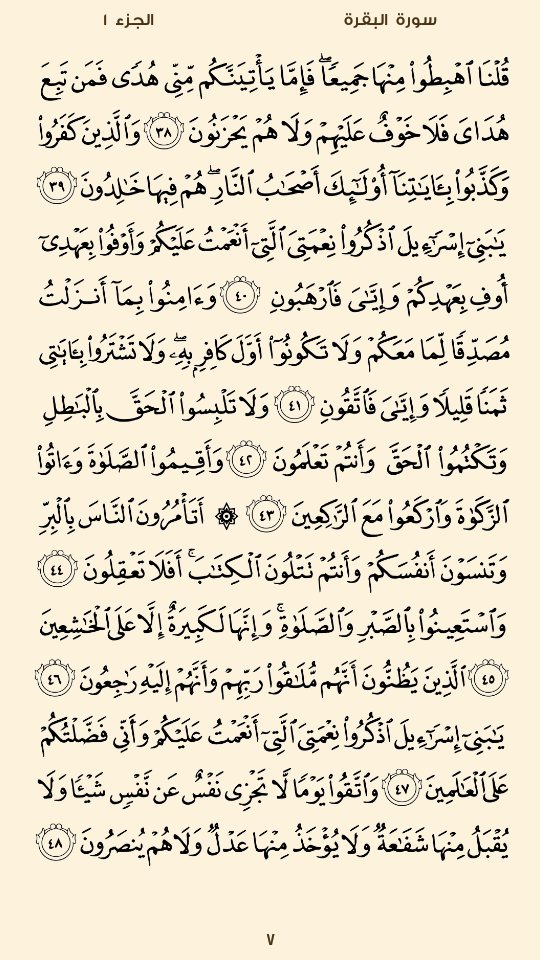 سورة البقرة
الجزء ١
قُلْنَا ٱهْبِطُوا۟ مِنْهَا جَمِيعًۭا ۖ فَإِمَّا يَأْتِيَنَّكُم مِّنِّى هُدًۭى فَمَن تَبِعَ
هُدَاىَ فَلَا خَوْفٌ عَلَيْهِمْ وَلَا هُمْ يَحْزَنُونَ ٣٨ وَٱلَّذِينَ كَفَرُوا۟
وَكَذَّبُوا۟ بِـَٔايَـٰتِنَآ أُو۟لَـٰٓئِكَ أَصْحَـٰبُ ٱلنَّارِ ۖ هُمْ فِيهَا خَـٰلِدُونَ ٣٩
يَـٰبَنِىٓ إِسْرَٰٓءِيلَ ٱذْكُرُوا۟ نِعْمَتِىَ ٱلَّتِىٓ أَنْعَمْتُ عَلَيْكُمْ وَأَوْفُوا۟ بِعَهْدِىٓ
أُوفِ بِعَهْدِكُمْ وَإِيَّـٰىَ فَٱرْهَبُونِ ٤٠ وَءَامِنُوا۟ بِمَآ أَنزَلْتُ
مُصَدِّقًۭا لِّمَا مَعَكُمْ وَلَا تَكُونُوٓا۟ أَوَّلَ كَافِرٍۭ بِهِۦ ۖ وَلَا تَشْتَرُوا۟ بِـَٔايَـٰتِى
ثَمَنًۭا قَلِيلًۭا وَإِيَّـٰىَ فَٱتَّقُونِ ٤١ وَلَا تَلْبِسُوا۟ ٱلْحَقَّ بِٱلْبَـٰطِلِ
وَتَكْتُمُوا۟ ٱلْحَقَّ وَأَنتُمْ تَعْلَمُونَ ٤٢ وَأَقِيمُوا۟ ٱلصَّلَوٰةَ وَءَاتُوا۟
ٱلزَّكَوٰةَ وَٱرْكَعُوا۟ مَعَ ٱلرَّٰكِعِينَ ٤٣ ۞ أَتَأْمُرُونَ ٱلنَّاسَ بِٱلْبِرِّ
وَتَنسَوْنَ أَنفُسَكُمْ وَأَنتُمْ تَتْلُونَ ٱلْكِتَـٰبَ ۚ أَفَلَا تَعْقِلُونَ ٤٤
وَٱسْتَعِينُوا۟ بِٱلصَّبْرِ وَٱلصَّلَوٰةِ ۚ وَإِنَّهَا لَكَبِيرَةٌ إِلَّا عَلَى ٱلْخَـٰشِعِينَ
٤٥ ٱلَّذِينَ يَظُنُّونَ أَنَّهُم مُّلَـٰقُوا۟ رَبِّهِمْ وَأَنَّهُمْ إِلَيْهِ رَٰجِعُونَ ٤٦
يَـٰبَنِىٓ إِسْرَٰٓءِيلَ ٱذْكُرُوا۟ نِعْمَتِىَ ٱلَّتِىٓ أَنْعَمْتُ عَلَيْكُمْ وَأَنِّى فَضَّلْتُكُمْ
عَلَى ٱلْعَـٰلَمِينَ ٤٧ وَٱتَّقُوا۟ يَوْمًۭا لَّا تَجْزِى نَفْسٌ عَن نَّفْسٍۢ شَيْـًۭٔا وَلَا
يُقْبَلُ مِنْهَا شَفَـٰعَةٌۭ وَلَا يُؤْخَذُ مِنْهَا عَدْلٌۭ وَلَا هُمْ يُنصَرُونَ ٤٨
٧